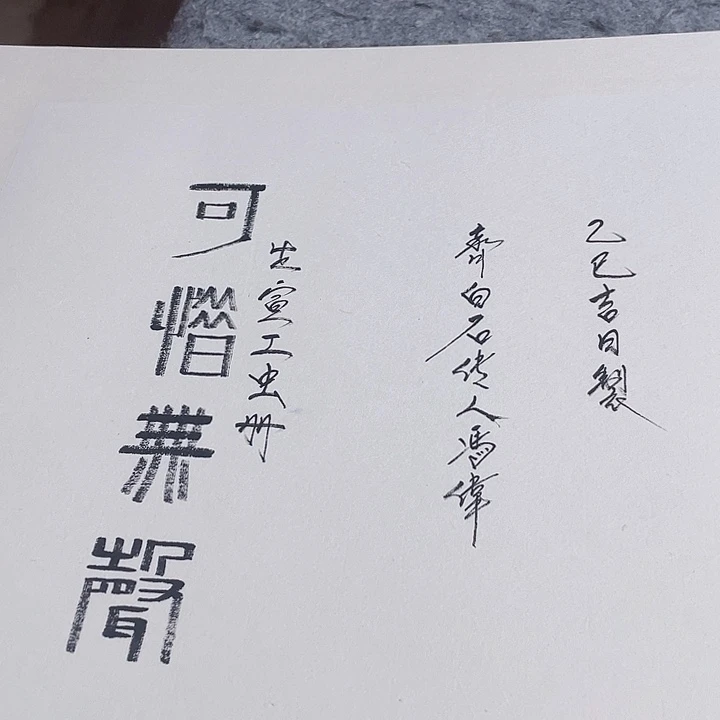 乙巳吉日製
齊白石传人馮偉
生宣工虫册
可惜無聲